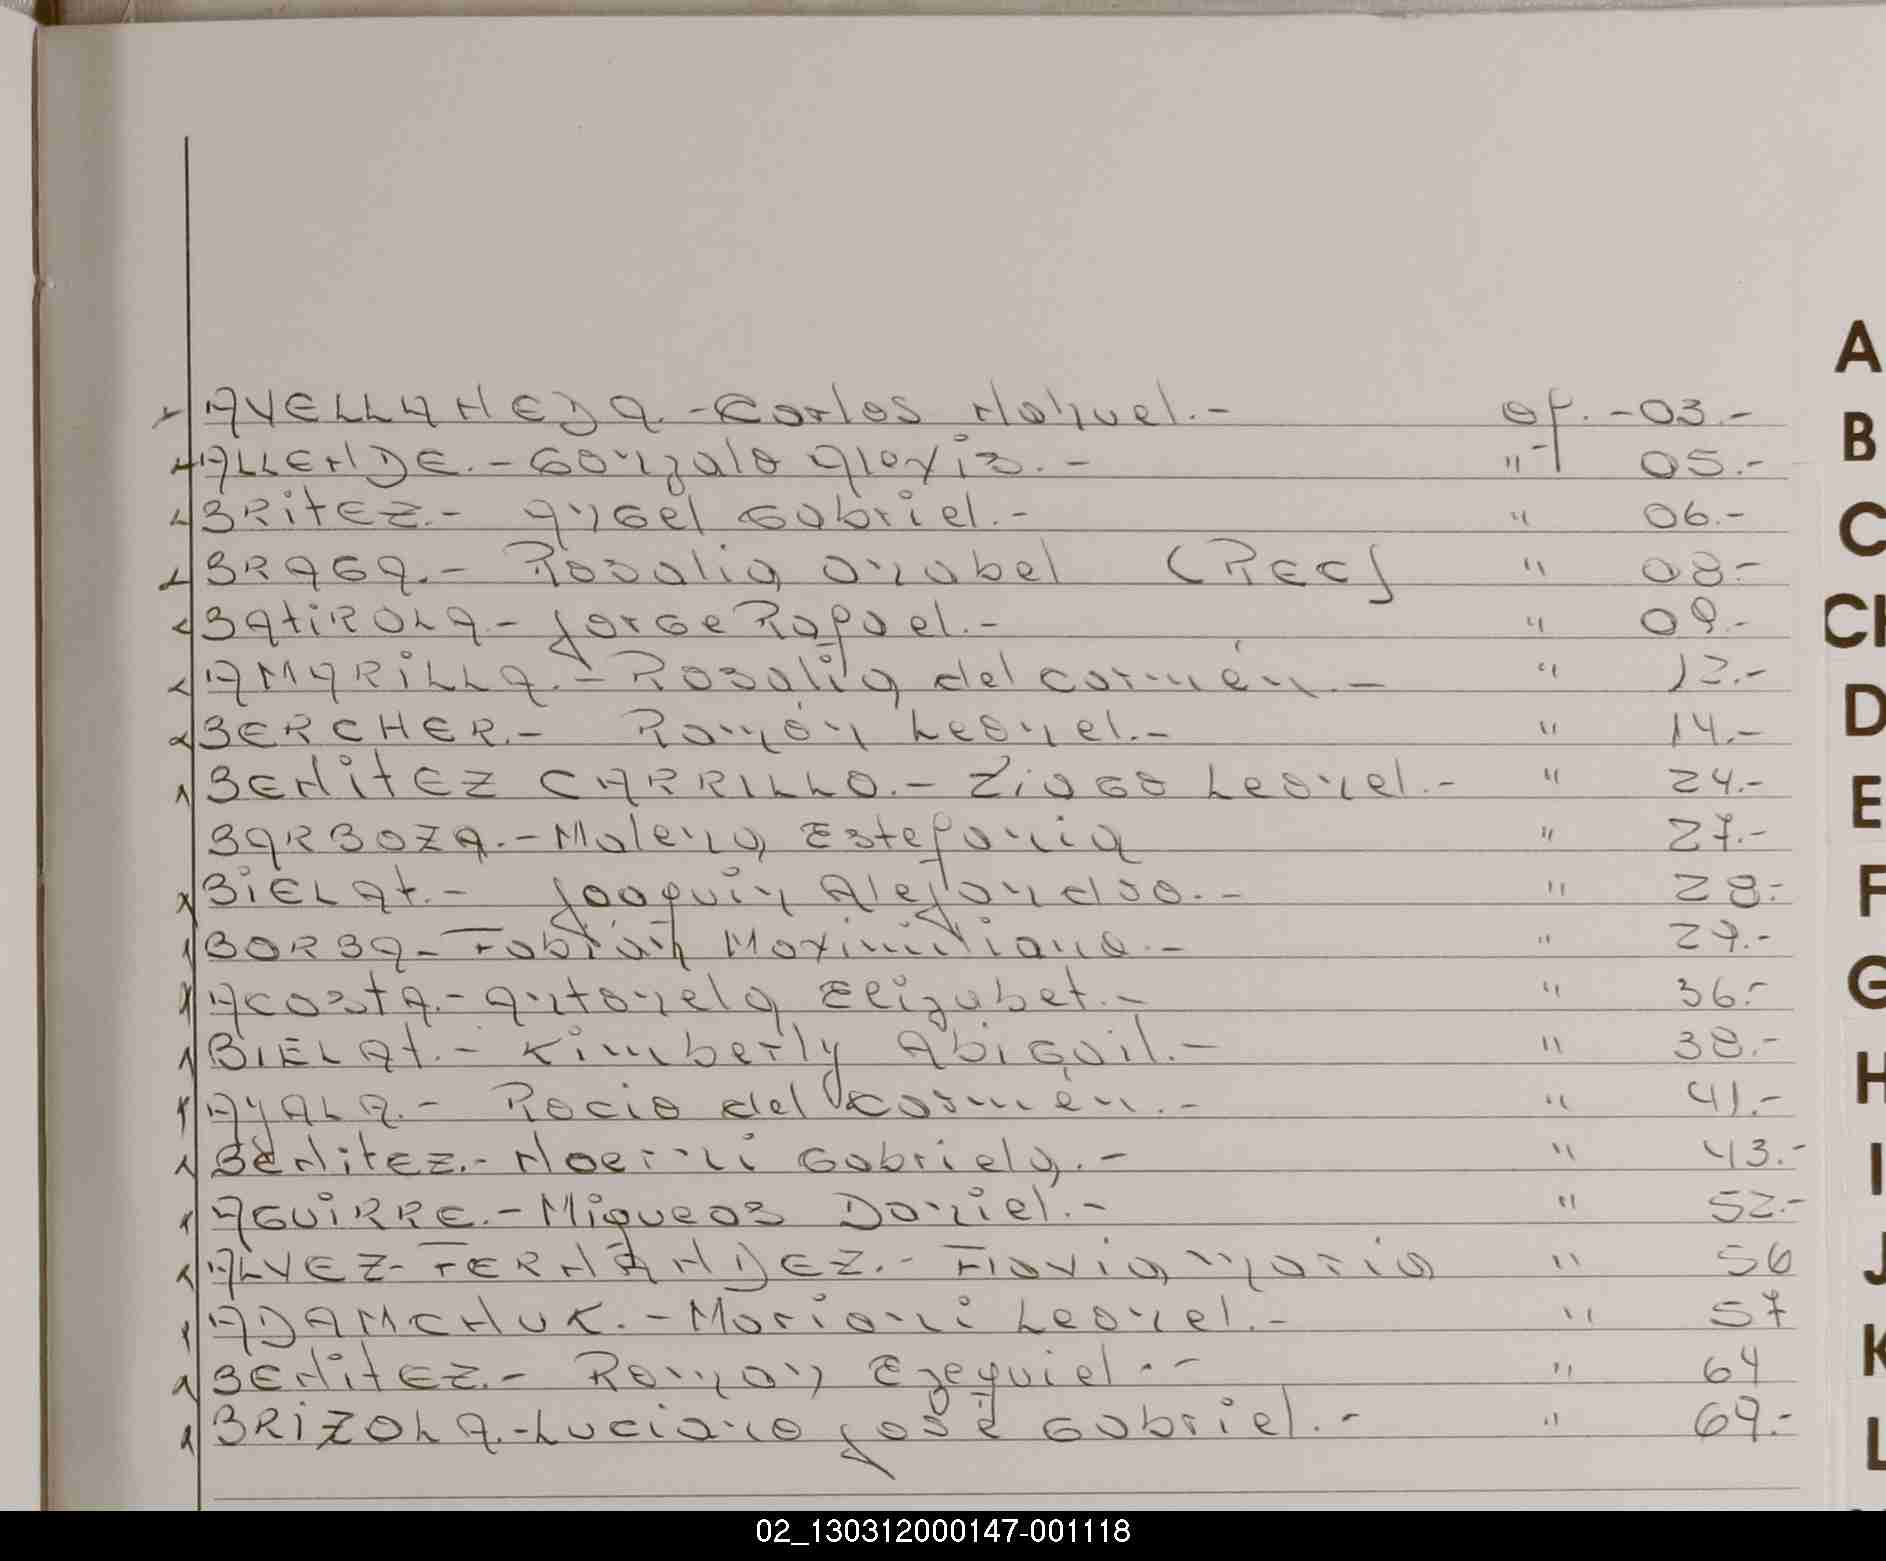 AVELLANEDA.-Carlos Nahuel.- of.-03.-
ALLENDE.-Gonzalo Alexis.- " 05.-
BRITEZ.- Angel Gabriel.- " 06.-
BRAGA.- Rosalia Anabel (REC) " 08.-
BATIROLA- Jorge Rafael.- " 09.-
AMARILLA.- Rosalia del Carmén.- " 12.-
BERCHER.- Ramón Leonel.- " 14.-
BENITEZ CARRILLO.- Ziago Leonel.- " 24.-
BARBOZA.-Malena Estefania " 27.-
BIELAT.- Joaquin Alejandro.- " 28.-
BORBA- Fabián Maximiliano.- " 29.-
ACOSTA.- Antonela Elizabet.- " 36.-
BIELAT.- Kimberly Abigail.- " 38.-
AYALA.- Rocio del Carmén.- " 41.-
BENITEZ.- Noemi Gabriela.- " 43.-
AGUIRRE.- Miqueas Daniel.- " 52.-
ALVEZ-FERNÁNDEZ.- Flavia Maria " 56
ADAMCHUK.-Mariani Leonel.- " 57
BENITEZ.- Raman Ezequiel.- " 64
BRIZOLA.-Luciano José Gabriel.- " 69.-
A
B
C
CH
D
E
F
G
H
I
J
K
L
02_130312000147-001118